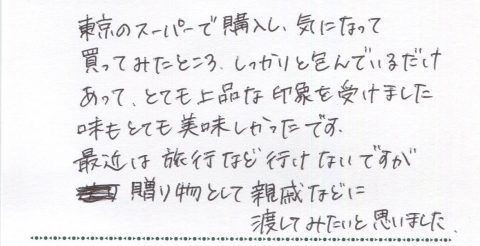 東京のスーパーで購入し、気になって
買ってみたところ、しっかりと包んでいるだけ
あって、とても上品な印象を受けました
味もとても美味しかったです.
最近は旅行など行けないですが
贈り物として親戚などに
渡してみたいと思いました.